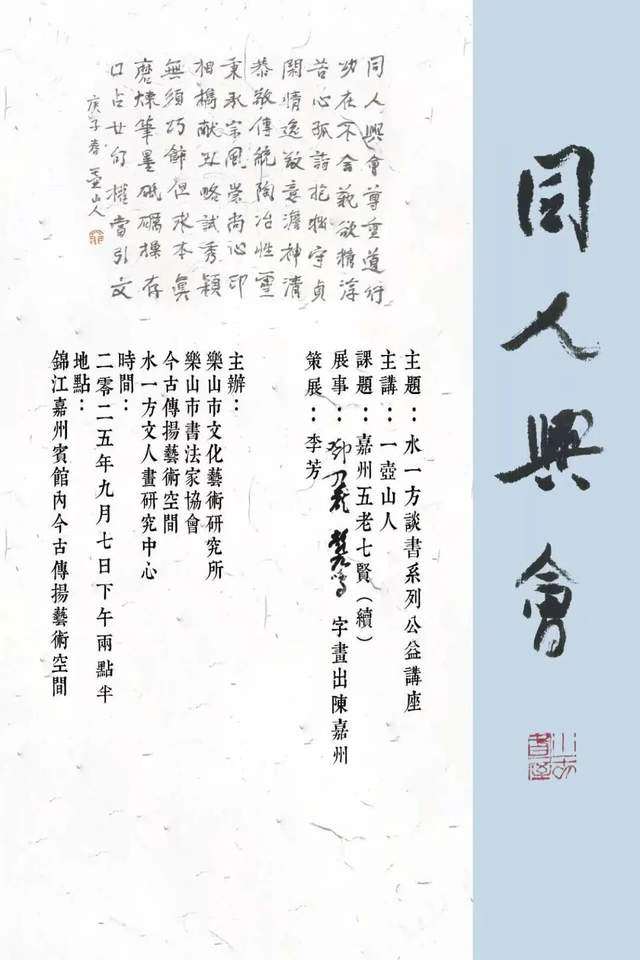 同人興會
同人興會尊重道行
功在不舍藝欲精淳
苦心孤詣抱樸守貞
閑情逸致意澹神清
恭敬傳統陶冶性靈
秉承宗風崇尚心印
相攜献丑略試秀穎
無須巧飾但求本真
磨煉筆墨砥礪操存
口占廿句權當引文
庚子春 壺山人
主題：水一方談書系列公益講座
主講：一壺山人
課題：嘉州五老七賢（續）
展事：字畫出陳嘉州
策展：李芳
主辦：
樂山市文化藝術研究所
樂山市書法家協會
今古傳揚藝術空間
水一方文人畫研究中心
時間：
二零二五年九月七日下午兩點半
地點：
錦江嘉州賓館內今古傳揚藝術空間